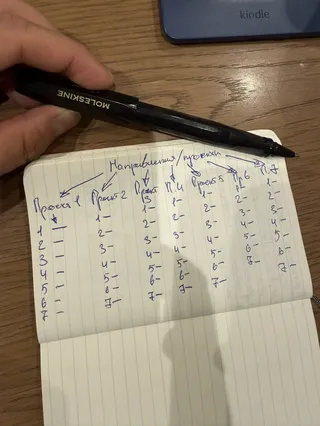 kindle
MOLESKINE
Направления/проекты
Проект 1 Проект 2 Проект 3 П. 4 Проект 5 Пр 6 П. 7
1 – 1 – 1 – 1 – 1 – 1 – 1 –
2 – 2 – 2 – 2 – 2 – 2 – 2 –
3 – 3 – 3 – 3 – 3 – 3 – 3 –
4 – 4 – 4 – 4 – 4 – 4 – 4 –
5 – 5 – 5 – 5 – 5 – 5 – 5 –
6 – 6 – 6 – 6 – 6 – 6 – 6 –
7 – 7 – 7 – 7 – 7 – 7 – 7 –